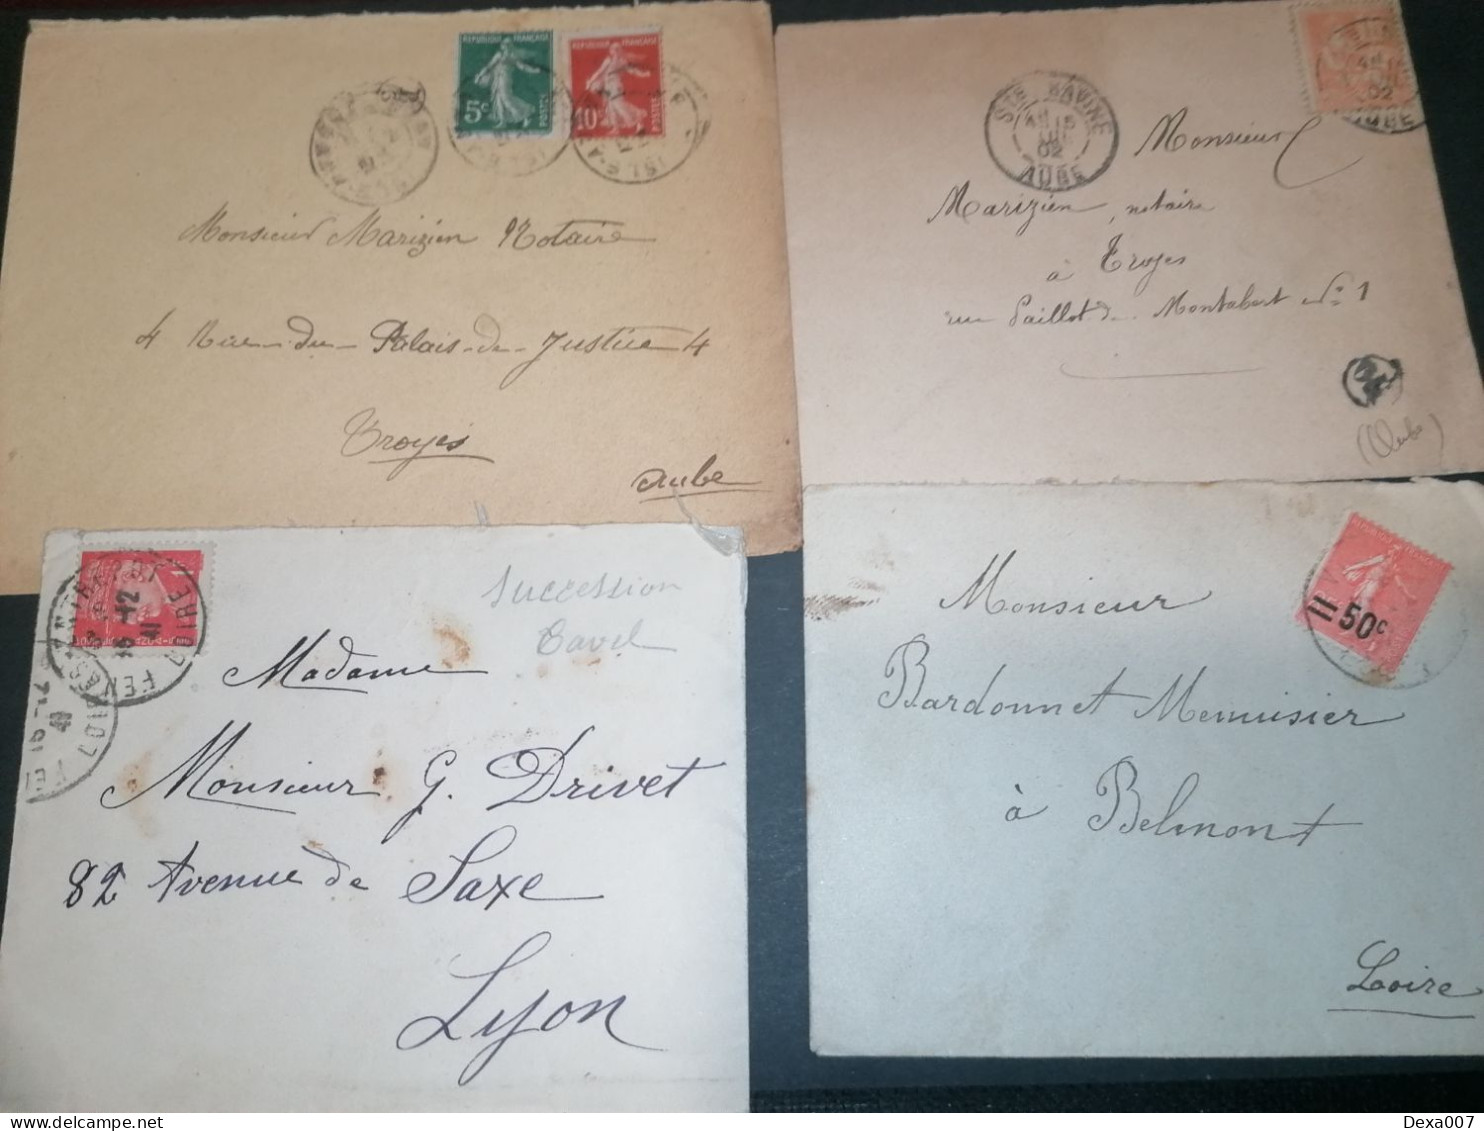 REPUBLIQUE FRANÇAISE
5c
POSTES
REPUBLIQUE FRANÇAISE
10c
POSTES
Monsieur Marizien Notaire
4 Rue du Palais de Justice 4
Troyes
Aube
STE SAVINE
02
AUBE
02
AUBE
Monsieur
Marizien, notaire
à Troyes
rue Paillot de Montabert No 1
(Aube)
12
41
LOIRE
Succession
Madame
Monsieur G. Drivet
82 Avenue de Saxe
Lyon
=50c
Monsieur
Bardonnet Menuisier
à Belmont
Loire
Dexa007